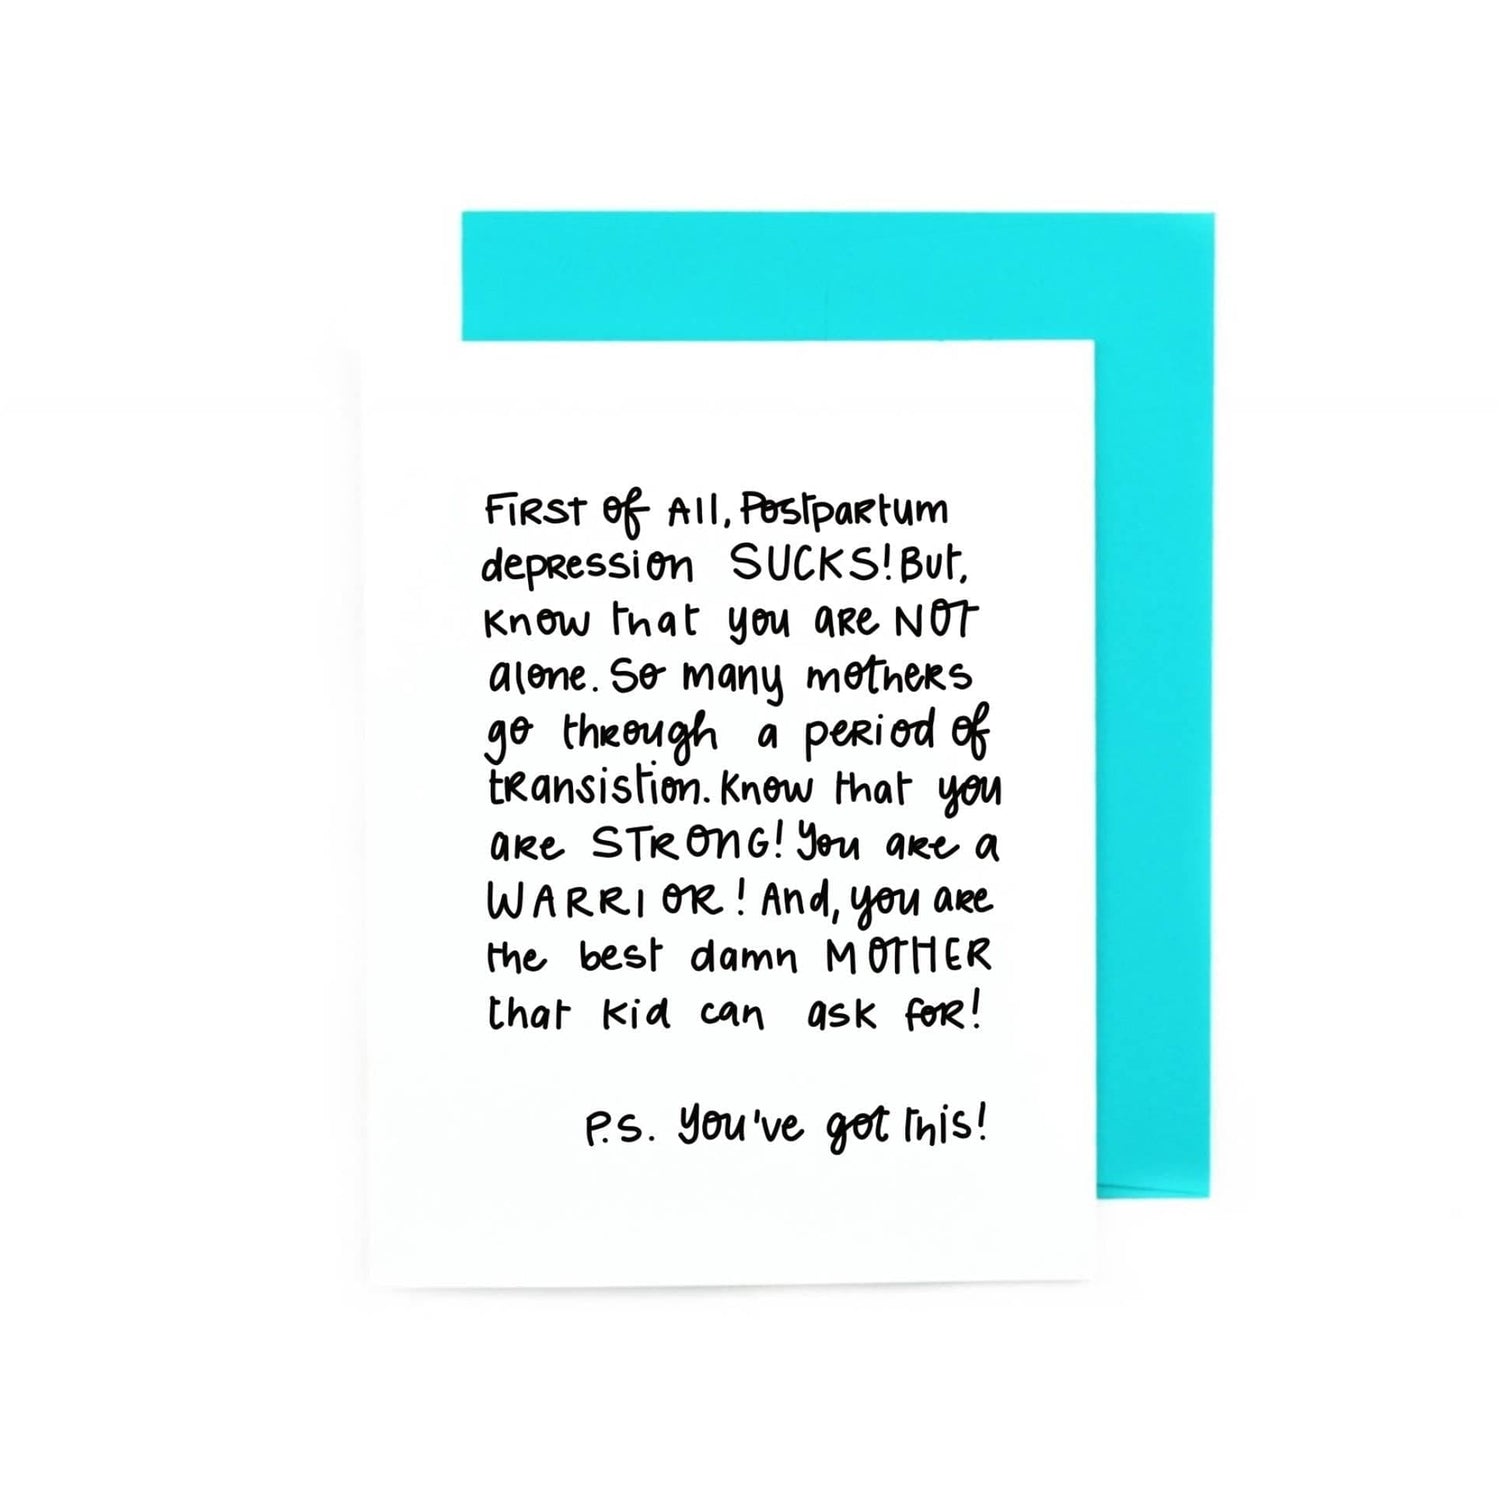 First of All, Postpartum
depression SUCKS! But,
know that you are NOT
alone. So many mothers
go through a period of
transistion. Know that you
are STRONG! You are a
WARRIOR! And, you are
the best damn MOTHER
that kid can ask for!
P.S. You've got this!